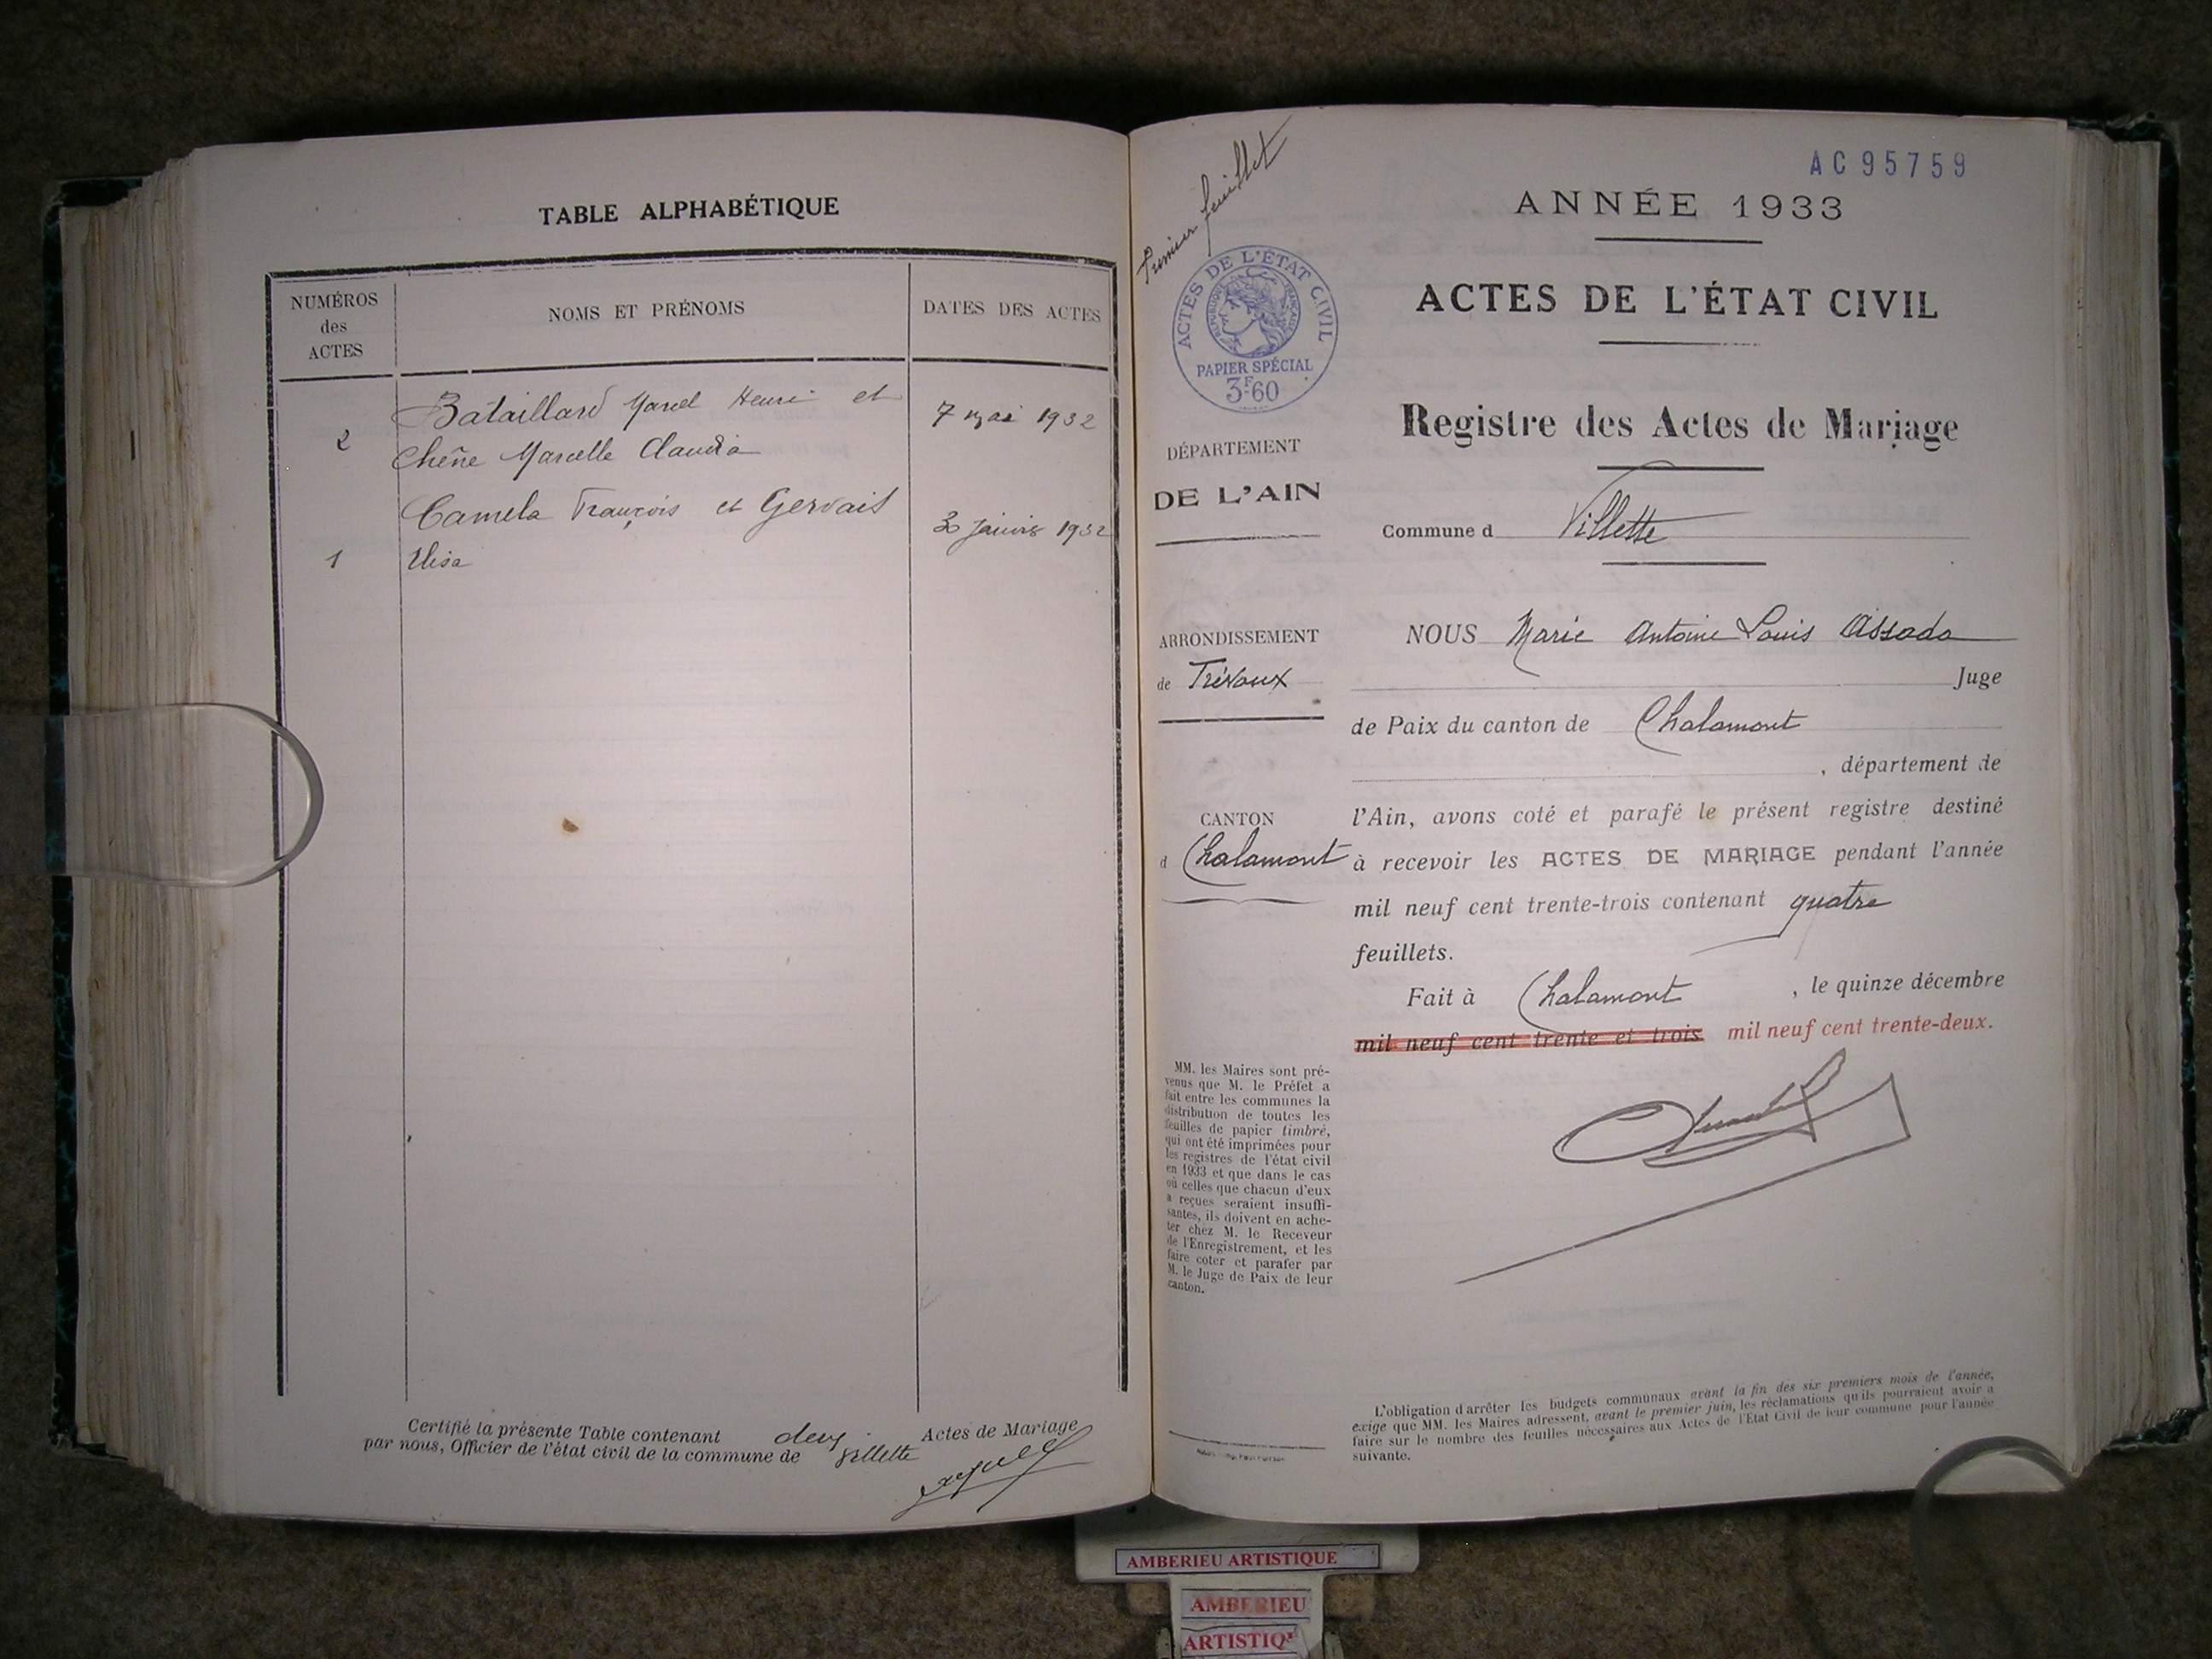 TABLE ALPHABÉTIQUE
NUMÉROS
des
ACTES
NOMS ET PRÉNOMS
DATES DES ACTES
2
Bataillard Marcel Henri et
Chêne Marcelle Claudia
7 mai 1932
Camela François et Gervais
1
Elisa
1932
Certifié la présente Table contenant deux Actes de Mariage
par nous, Officier de l'état civil de la commune de Villette
Premier feuillet
AC95759
ANNÉE 1933
ACTES DE L'ÉTAT CIVIL
RÉPUBLIQUE FRANÇAISE
PAPIER SPÉCIAL
3F60
ACTES DE L'ÉTAT CIVIL
Registre des Actes de Mariage
DÉPARTEMENT
DE L'AIN
Commune d Villette
ARRONDISSEMENT
de Trévoux
CANTON
d Chalamont
NOUS Marie Antoine Louis Assada
Juge
de Paix du canton de Chalamont
, département de
l'Ain, avons coté et parafé le présent registre destiné
à recevoir les ACTES DE MARIAGE pendant l'année
mil neuf cent trente-trois contenant quatre
feuillets.
Fait à Chalamont , le quinze décembre
mil neuf cent trente et trois mil neuf cent trente-deux.
MM. les Maires sont pré-
venus que M. le Préfet a
fait entre les communes la
distribution de toutes les
feuilles de papier timbré,
qui ont été imprimées pour
les registres de l'état civil
en 1933 et que dans le cas
où celles que chacun d'eux
a reçues seraient insuffi-
santes, ils doivent en ache-
ter chez M. le Receveur
de l'Enregistrement, et les
faire coter et parafer par
M. le Juge de Paix de leur
canton.
L'obligation d'arrêter les budgets communaux avant la fin des six premiers mois de l'année,
exige que MM. les Maires adressent, avant le premier juin, les réclamations qu'ils pourraient avoir à
faire sur le nombre des feuilles nécessaires aux Actes de l'État Civil de leur commune pour l'année
suivante.
AMBERIEU ARTISTIQUE
AMBERIEU
ARTISTIQ